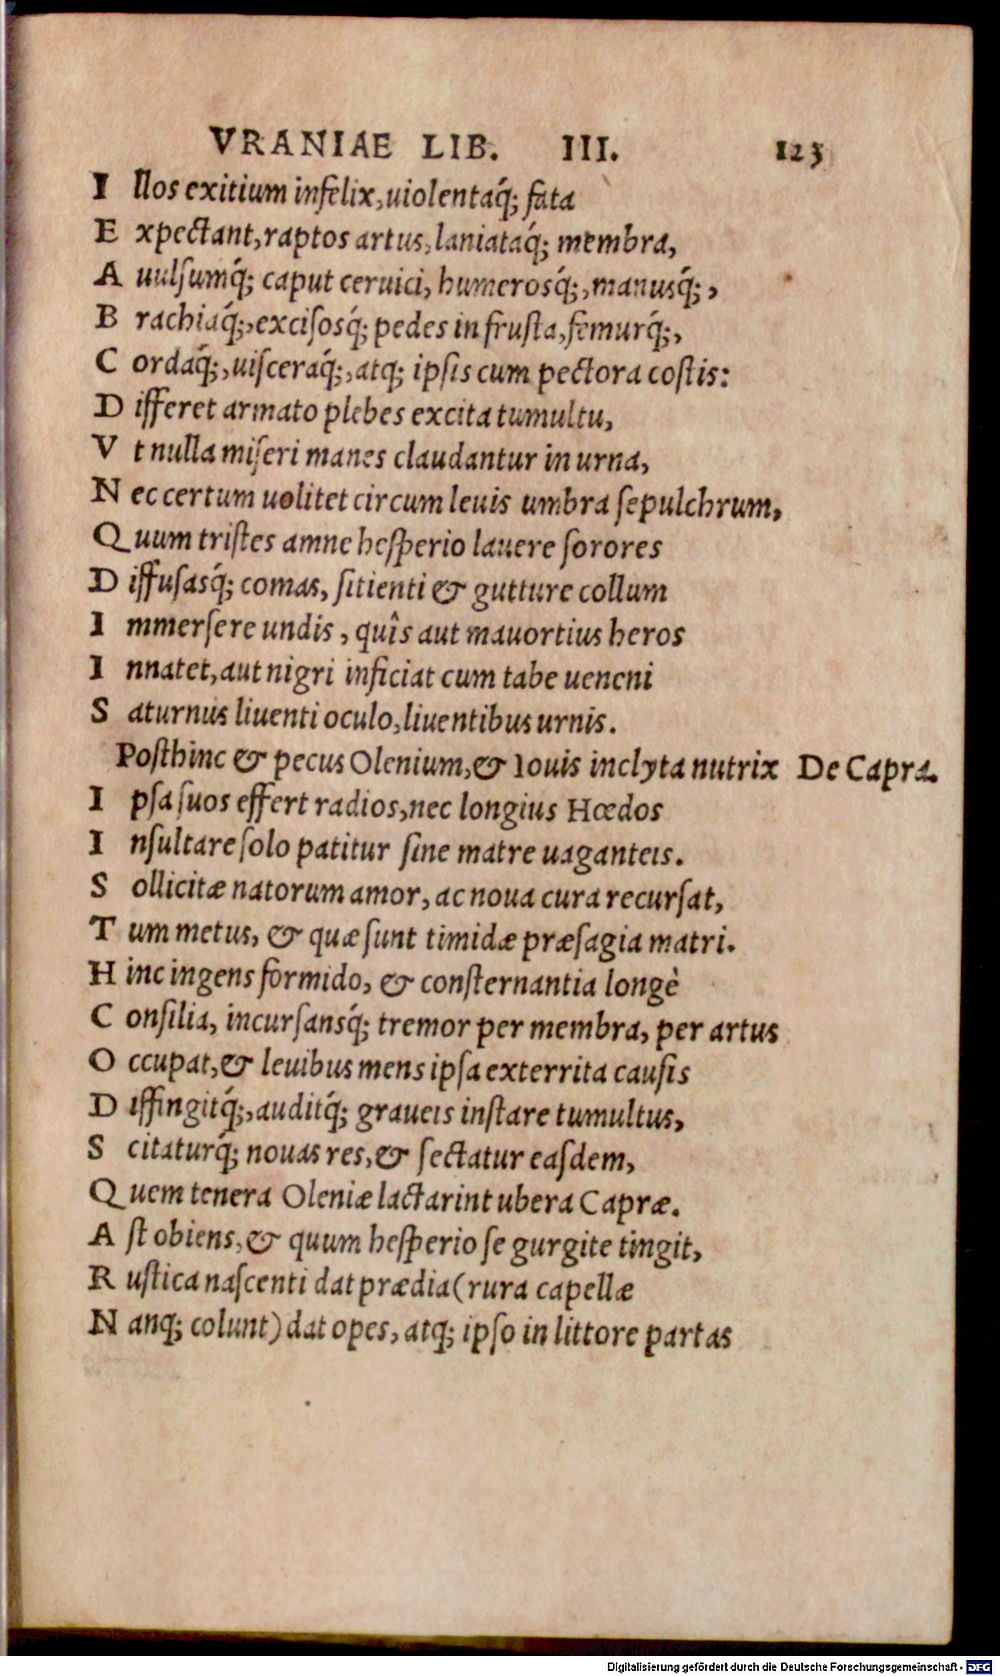 VRANIAE LIB. III. 123
I llos exitium infelix, uiolentaq́; fata
E xpectant, raptos artus, laniataq́; membra,
A uulsumq́; caput ceruici, humerosq́;, manusq́;,
B rachiaq́;, excisosq́; pedes in frusta, femurq́;,
C ordaq́;, uisceraq́;, atq; ipsis cum pectora costis:
D ifferet armato plebes excita tumultu,
V t nulla miseri manes claudantur in urna,
N ec certum uolitet circum leuis umbra sepulchrum,
Q uum tristes amne hesperio lauere sorores
D iffusasq́; comas, sitienti & gutture collum
I mmersere undis, quîs aut mauortius heros
I nnatet, aut nigri inficiat cum tabe ueneni
S aturnus liuenti oculo, liuentibus urnis.
Posthinc & pecus Olenium, & Iouis inclyta nutrix De Capra.
I psa suos effert radios, nec longius Hœdos
I nsultare solo patitur sine matre uaganteis.
S ollicitæ natorum amor, ac noua cura recursat,
T um metus, & quæ sunt timidæ præsagia matri.
H inc ingens formido, & consternantia longè
C onsilia, incursansq́; tremor per membra, per artus
O ccupat, & leuibus mens ipsa exterrita causis
D iffingitq́;, auditq́; graueis instare tumultus,
S citaturq́; nouas res, & sectatur easdem,
Q uem tenera Oleniæ lactarint ubera Capræ.
A st obiens, & quum hesperio se gurgite tingit,
R ustica nascenti dat prædia (rura capellæ
N anq; colunt) dat opes, atq; ipso in littore partas
Digitalisierung gefördert durch die Deutsche Forschungsgemeinschaft - DFG